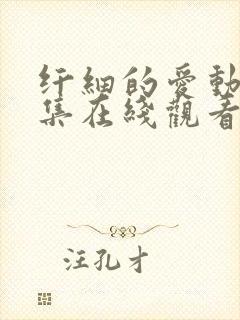 纤細的愛動
集在綫觀看
汪孔才